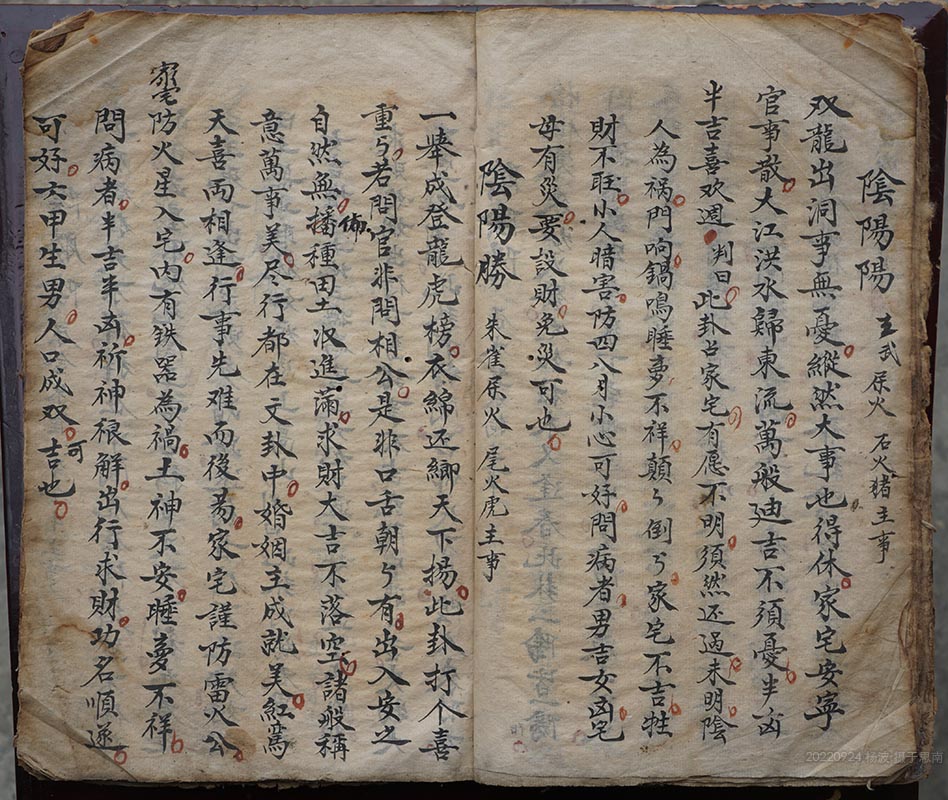 陰陽陽 玄武屎火 石火猪主事
双龍出洞事無憂縱然大事也得休家宅安寧
官事散大江洪水歸東流萬般廸吉不須憂半凶
半吉喜欢週判曰此卦占家宅有愿不明須然还過未明陰
人為祸門响鍋鳴睡夢不祥顛々倒々家宅不吉牲
財不旺小人暗害防四八月小心可好問病者男吉女凶宅
母有災要設財免災可也
陰陽勝 朱雀屎火 尾火虎主事
一舉成登龍虎榜衣綿还鄉天下揚此卦打个喜
重々若問官非問相公是非口舌朝々有出入安之
自然無佈播種田土次進滿求財大吉不落空諸般稱
意萬事美尽行都在文卦中婚姻主成就美紅鸞
天喜両相逢行事先难而後易家宅謹防雷火公
蜜防火星入宅内有铁器為禍土神不安睡夢不祥
問病者半吉半凶祈神禄解出行求財功名順遂
可好六甲生男人口成双可吉也
20220924 杨波 摄于思南